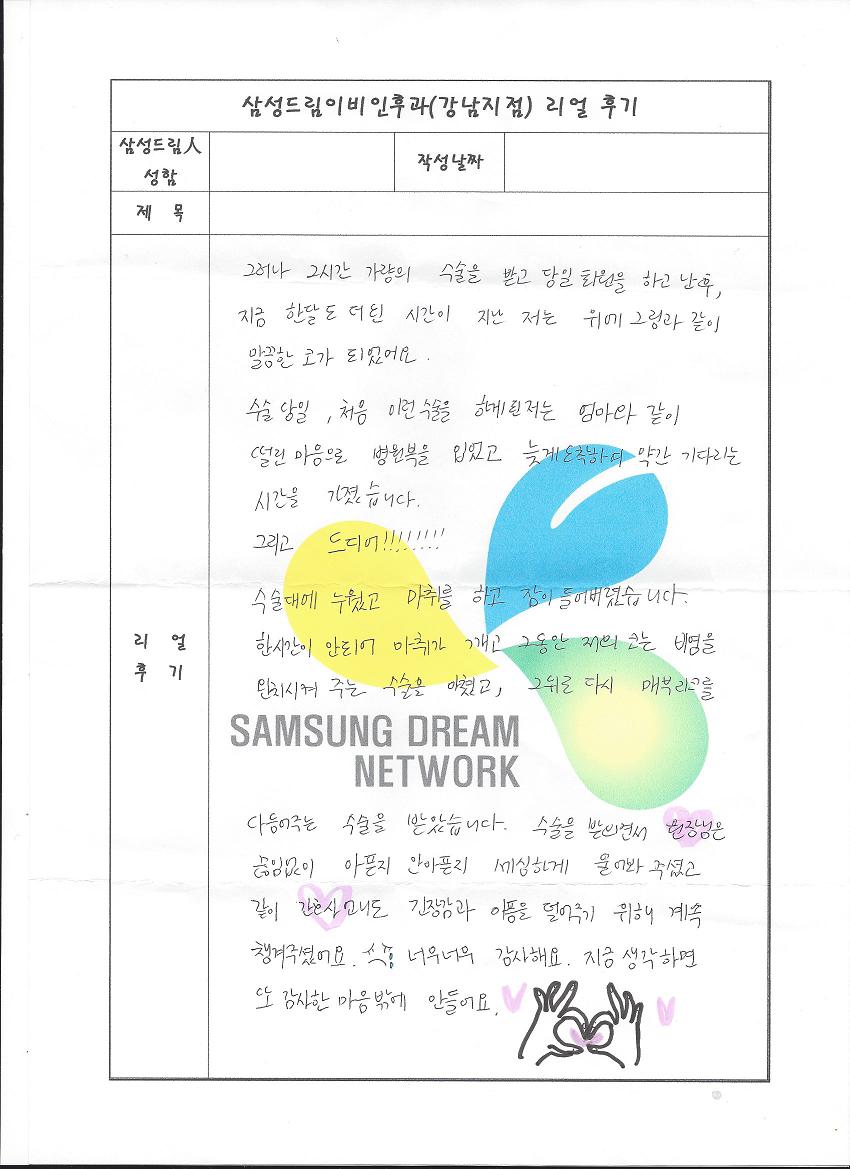 삼성드림이비인후과(강남지점) 리얼 후기
삼성드림人
성함
작성날짜
제 목
리 얼
후 기
그러나 2시간 가량의 수술을 받고 당일 퇴원을 하고 난 후,
지금 한달도 더 된 시간이 지난 저는 위에 그림과 같이
말끔한 코가 되었어요.
수술 당일, 처음 이런 수술을 하게된 저는 엄마와 같이
떨린 마음으로 병원복을 입었고 늦게 도착하여 약간 기다리는
시간을 가졌습니다.
그리고 드디어!!!!!!!!
수술대에 누웠고 마취를 하고 잠이 들어버렸습니다.
한시간이 안되어 마취가 깨고 그동안 저의 코는 비염을
완치시켜 주는 수술을 마쳤고, 그뒤로 다시 매부리코를
SAMSUNG DREAM
NETWORK
다듬어주는 수술을 받았습니다. 수술을 받으면서 원장님은
끊임없이 아픈지 안아픈지 세심하게 물어봐 주셨고
같이 간호사 언니도 긴장감과 아픔을 덜어주기 위해 계속
챙겨주셨어요. 너무너무 감사해요. 지금 생각하면
또 감사한 마음밖에 안들어요.